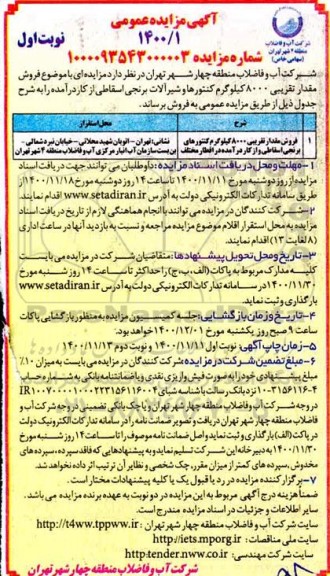 آگهی مزایده عمومی
نوبت اول
۱۴۰۰/۱
شماره مزایده ۱۰۰۰۰۹۳۵۴۳۰۰۰۰۰۳
شرکت آب و فاضلاب
منطقه ۴ شهر تهران
(سهامی خاص)
شرکت آب و فاضلاب منطقه چهار شهر تهران در نظر دارد مزایده ای با موضوع فروش
مقدار تقریبی ۸۰۰۰ کیلوگرم کنتورها و شیرآلات برنجی اسقاطی از کار درآمده را به شرح
جدول ذیل از طریق مزایده عمومی به فروش برساند.
شرح
محل استقرار
۱
فروش مقدار تقریبی ۸۰۰۰ کیلوگرم کنتورهای
برنجی اسقاطی و از کار درآمده در اقطار مختلف
نشانی: تهران - اتوبان شهید محلاتی - خیابان نبرد شمالی -
بن بست سازمان آب انبار مرکزی آب و فاضلاب منطقه ۴ شهر تهران
۱- مهلت و محل دریافت اسناد مزایده: داوطلبان می توانند جهت دریافت اسناد
مزایده از روز دوشنبه مورخ ۱۴۰۰/۱۱/۱۱ تا ساعت ۱۴ روز دوشنبه مورخ ۱۴۰۰/۱۱/۱۸ از
طریق سامانه تدارکات الکترونیکی دولت به آدرس www.setadiran.ir اقدام نمایند.
۲- شرکت کنندگان در مزایده می توانند با انجام هماهنگی لازم از تاریخ دریافت اسناد
مزایده به محل استقرار اقلام موضوع مزایده مراجعه و نسبت به بازدید آنها در ساعت اداری
(۸ لغایت ۱۳) اقدام نمایند.
۳- تاریخ و محل تحویل پیشنهادها: متقاضیان شرکت در مزایده می بایست
کلیه مدارک مربوط به پاکات (الف، ب، ج) را حداکثر تا ساعت ۱۴ روز شنبه مورخ
۱۴۰۰/۱۱/۳۰ در سامانه تدارکات الکترونیکی دولت به آدرس www.setadiran.ir
بارگذاری و ثبت نماید.
۴- تاریخ و زمان بازگشایی: جلسه کمیسیون مزایده به منظور بازگشایی پاکات
ساعت ۹ صبح روز یکشنبه مورخ ۱۴۰۰/۱۲/۰۱ خواهد بود.
۵- زمان چاپ آگهی: نوبت اول ۱۴۰۰/۱۱/۱۱ و نوبت دوم ۱۴۰۰/۱۱/۱۳
۶- مبلغ تضمین شرکت در مزایده: شرکت کنندگان در مزایده می بایست به میزان ۱۰٪
مبلغ پیشنهادی خود را به صورت فیش واریزی نقدی و یا ضمانتنامه بانکی به شماره حساب
در وجه شرکت آب و فاضلاب منطقه چهار شهر تهران و یا چک بانکی تضمینی در وجه شرکت آب و
فاضلاب منطقه چهار شهر تهران دریافت و تصویر ضمانت نامه را در سامانه تدارکات الکترونیک دولت
در پاکت (الف) بارگذاری و ثبت نماید و اصل ضمانت نامه موصوف را تا ساعت ۱۴ روز شنبه مورخ
۱۴۰۰/۱۱/۳۰ به دبیرخانه این شرکت تسلیم نماید و به پیشنهادهایی که فاقد سپرده، سپرده های
مخدوش، سپرده های کمتر از میزان مقرر، چک شخصی و نظایر آن ترتیب اثر داده نخواهد شد.
۷- برگزار کننده مزایده در رد یا قبول یک یا کلیه پیشنهادات مختار است.
ضمناً هزینه درج آگهی مربوط به این مزایده در دو نوبت به عهده برنده مزایده می باشد.
سایر اطلاعات و جزئیات در اسناد مزایده مندرج است.
سایت شرکت آب و فاضلاب منطقه چهار شهر تهران: http://t4ww.tppww.ir
سایت ملی مناقصات: http://iets.mporg.ir
سایت شرکت مهندسی: http:tender.nww.co.ir
شرکت آب و فاضلاب منطقه چهار شهر تهران